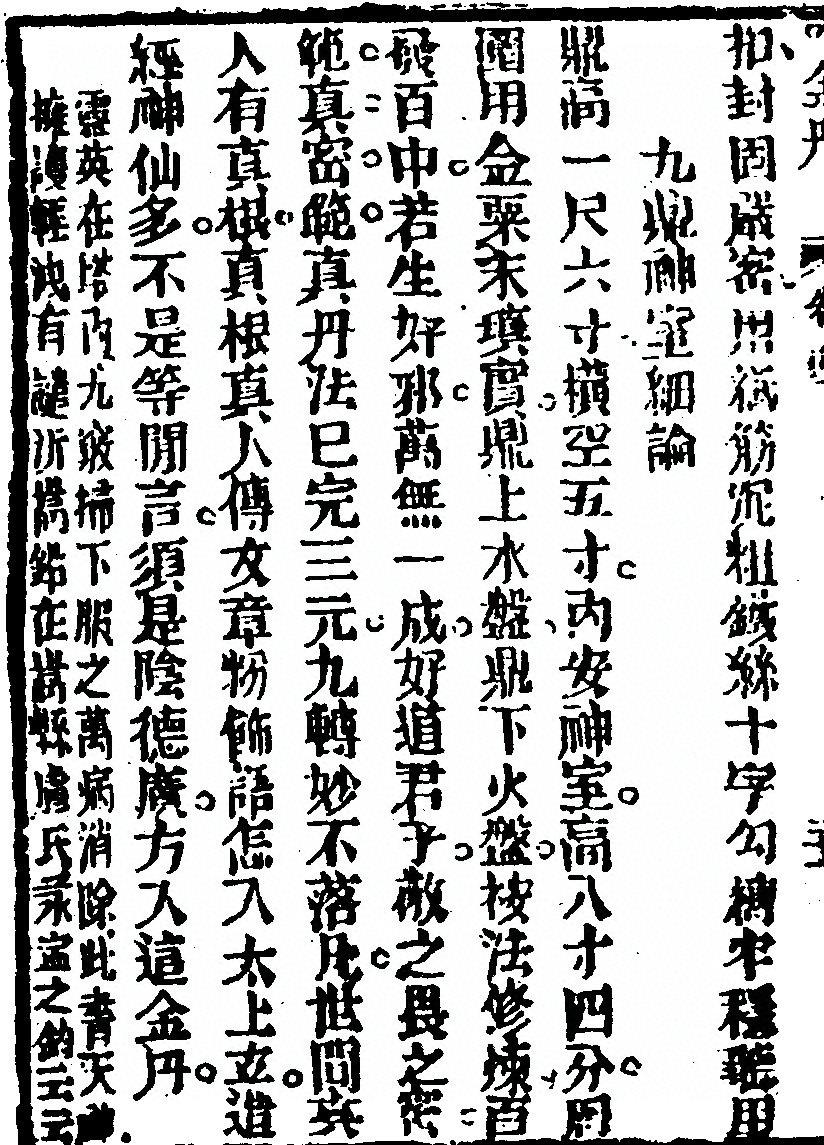 扣封固嚴密用紙筋泥粗鐵絲十字勾搏牢穩聽用
九鼎神室細論
鼎高一尺六寸橫空五寸內安神室高八寸四分周
圍用金粟末填實鼎上水盤鼎下火盤按法修煉百
發百中若生好邪萬無一成好道君子敬之畏之密
範真密範真丹法已完三元九轉妙不落凡世間真
人有真根真根真人傳文章粉飾語怎入太上立造
經神仙多不是等閒言須是陰德廣方入這金丹
靈英在塔內九竅掃下服之萬病消除此青天
擁護輕洩有譴所鑄鉛在嵩縣盧氏永寧之鈞云云